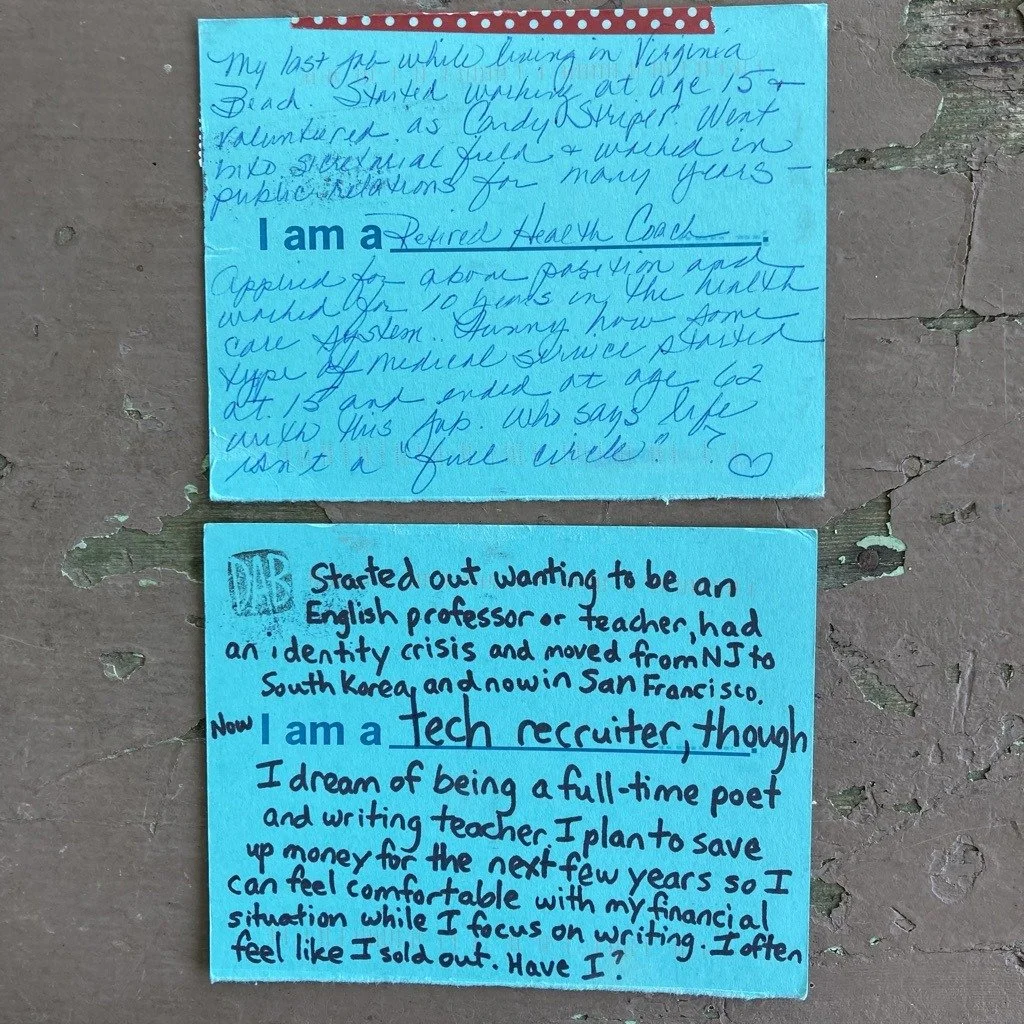 My last job while living in Virginia
Beach. Started working at age 15 +
volunteered as Candy Striper. Went
into secretarial field + worked in
public relations for many years –
I am a Retired Health Coach.
Applied for above position and
worked for 10 years in the health
care system. Funny how some
type of medical service started
at 15 and ended at age 62
with this job. Who says life
isn't a "full circle"? ♡
DAB
Started out wanting to be an
English professor or teacher, had
an identity crisis and moved from NJ to
South Korea, and now in San Francisco.
Now I am a tech recruiter, though
I dream of being a full-time poet
and writing teacher. I plan to save
up money for the next few years so I
can feel comfortable with my financial
situation while I focus on writing. I often
feel like I sold out. Have I?